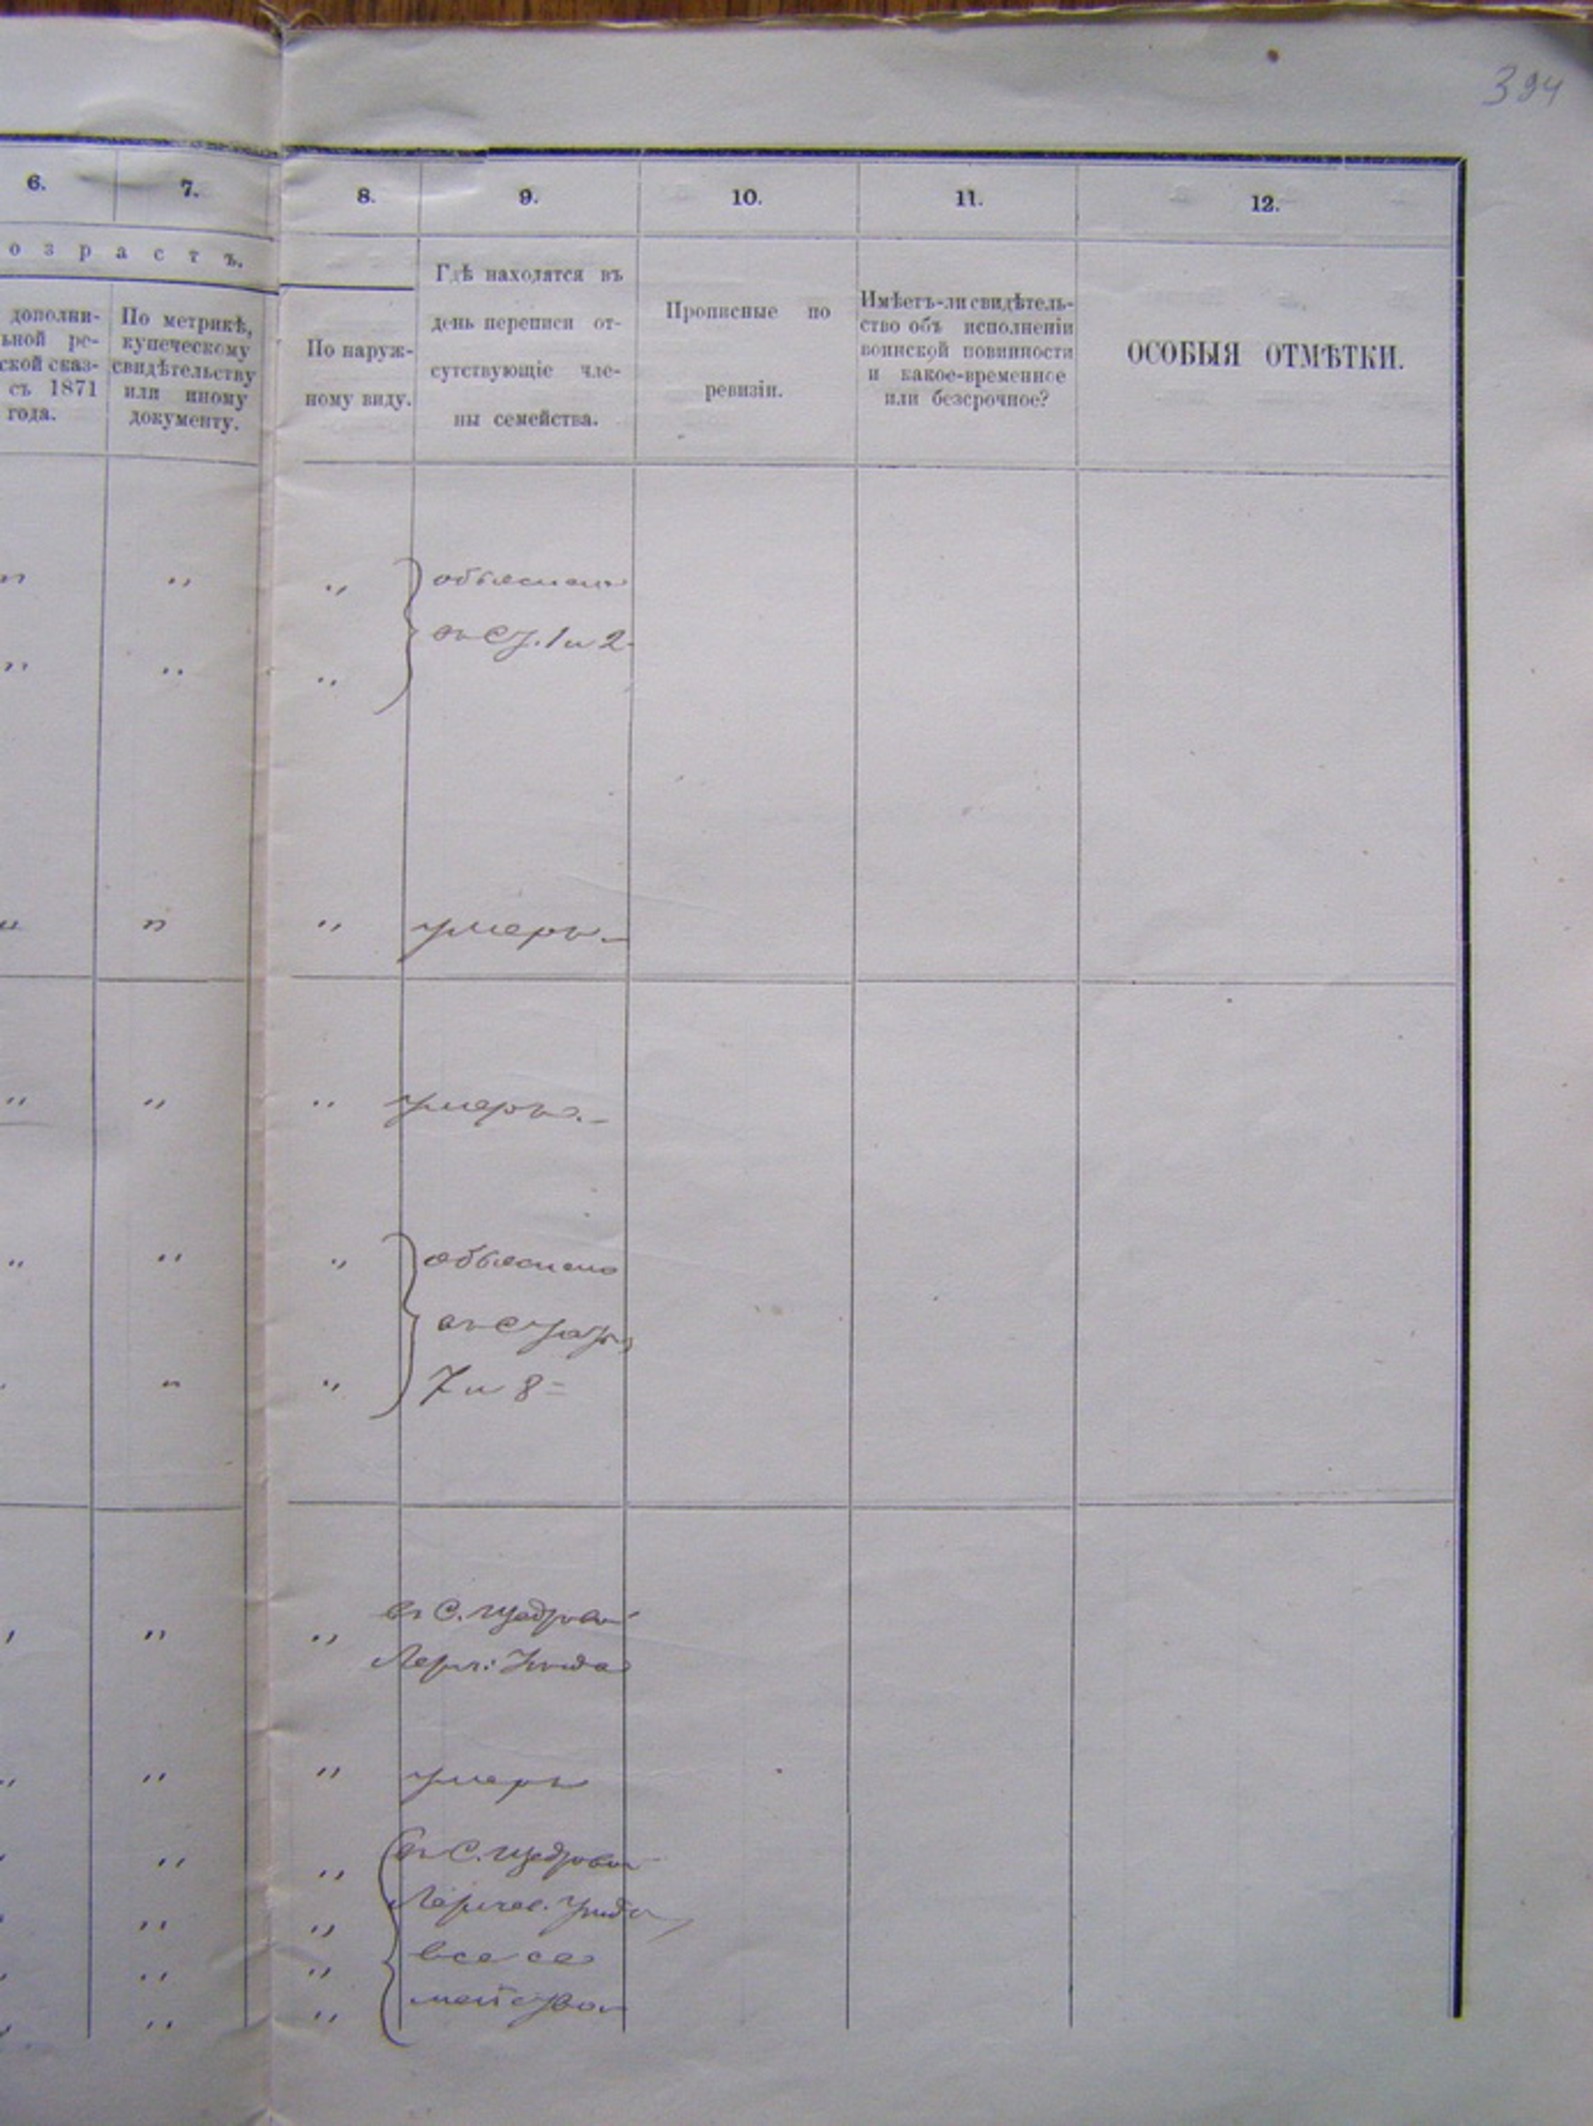 394
6. 7. 8. 9. 10. 11. 12.
о з р а с т ъ.
дополни-
ьной ре-
ской сказ-
съ 1871
года.
По метрикѣ,
купеческому
свидѣтельству
или иному
документу.
По наруж-
ному виду.
Гдѣ находятся въ
день переписи от-
сутствующіе чле-
ны семейства.
Прописные по
ревизіи.
Имѣетъ-ли свидѣтель-
ство объ исполненіи
воинской повинности
и какое-временное
или безсрочное?
ОСОБЫЯ ОТМѢТКИ.
„ „ „ объяснено
въ ст. 1 и 2
„ „ „
„ „ „ умеръ
„ „ „ умеръ.
„ „ „ объяснено
въ
„ „ „ 7 и 8
„ „ „ въ С.
„ „ „ умеръ
„ „ „ въ С.
„ „ „
„ „ „ все се
„ „ „ мейство